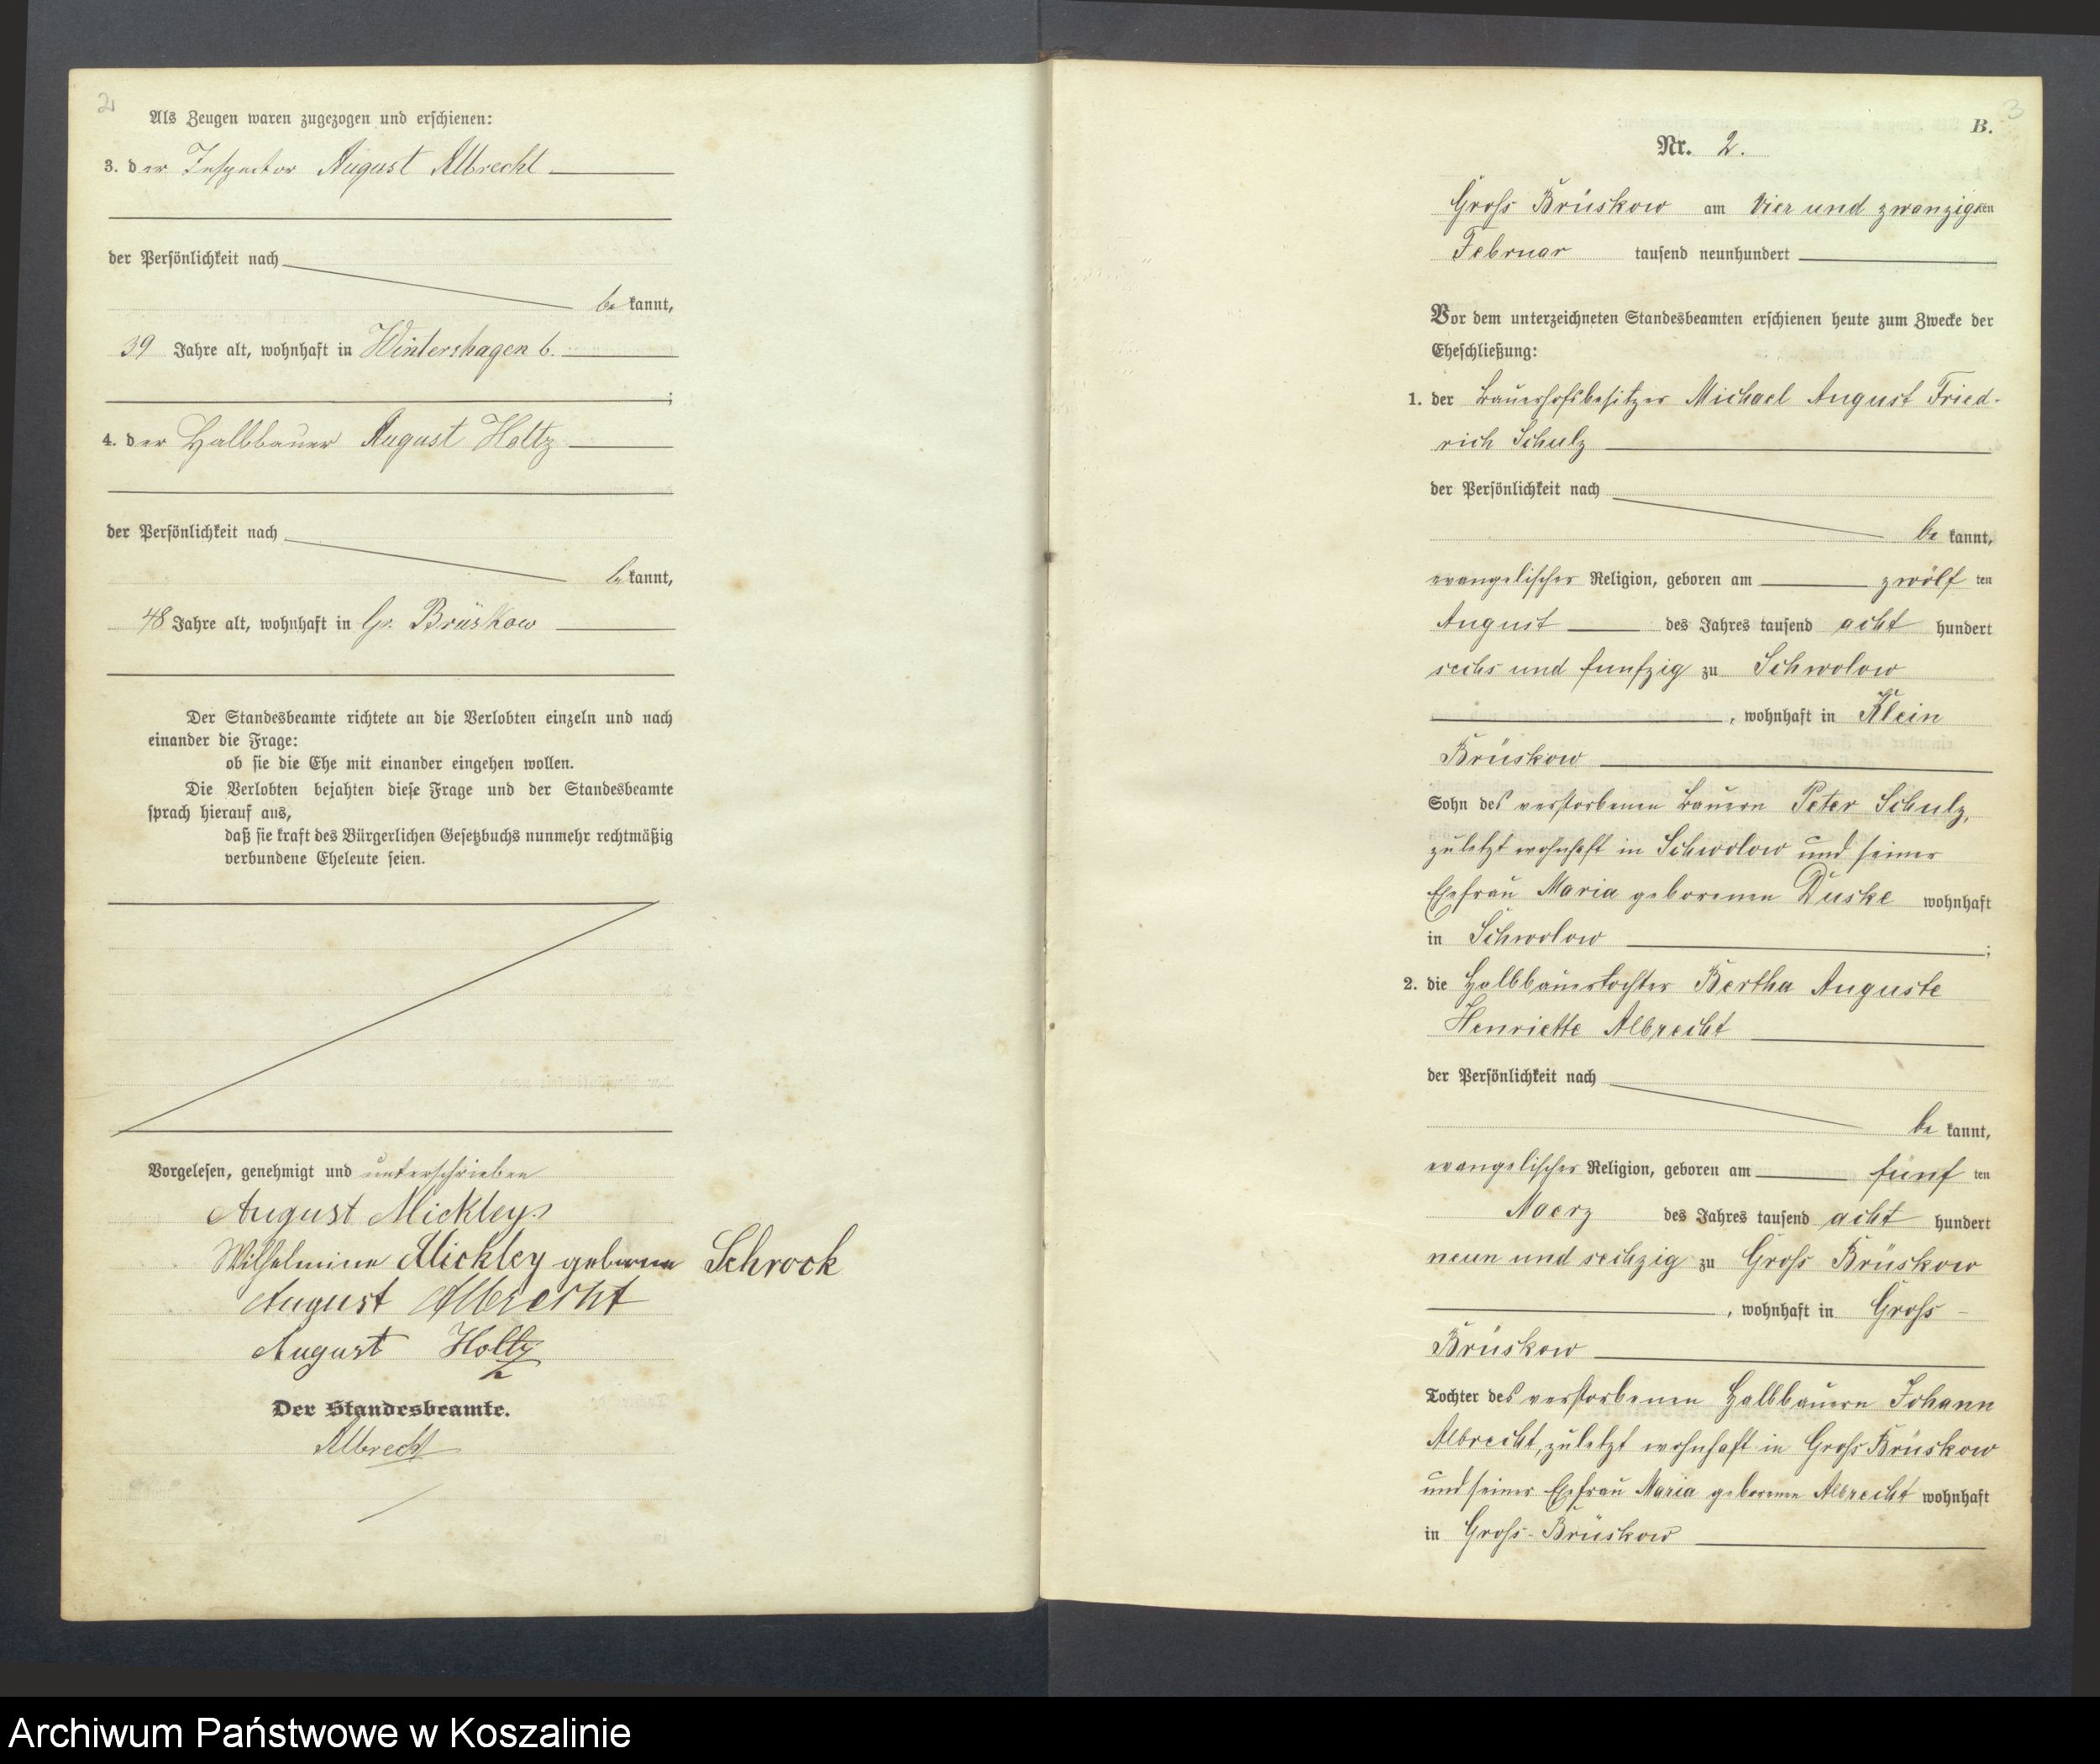 2
Als Zeugen waren zugezogen und erschienen:
3. der Inspector August Albrecht
der Persönlichkeit nach
be kannt,
39 Jahre alt, wohnhaft in Wintershagen b.
;
4. der Halbbauer August Holtz
der Persönlichkeit nach
be kannt,
48 Jahre alt, wohnhaft in Gr. Brüskow
Der Standesbeamte richtete an die Verlobten einzeln und nach
einander die Frage:
ob sie die Ehe mit einander eingehen wollen.
Die Verlobten bejahten diese Frage und der Standesbeamte
sprach hierauf aus,
daß sie kraft des Bürgerlichen Gesetzbuchs nunmehr rechtmäßig
verbundene Eheleute seien.
Vorgelesen, genehmigt und unterschrieben
August Mickley
Wilhelmine Mickley geborene Schrock
August Albrecht
August Holtz
Der Standesbeamte.
Albrecht
3
B.
Nr. 2.
Gross Brüskow am vier und zwanzigsten
Februar tausend neunhundert
Vor dem unterzeichneten Standesbeamten erschienen heute zum Zwecke der
Eheschließung:
1. der Bauerhofsbesitzer Michael August Fried-
rich Schulz
der Persönlichkeit nach
be kannt,
evangelischer Religion, geboren am zwölf ten
August des Jahres tausend acht hundert
sechs und funfzig zu Schwolow
, wohnhaft in Klein
Brüskow
Sohn des verstorbenen Bauern Peter Schulz,
zuletzt wohnhaft in Schwolow und seiner
Ehefrau Maria geborenen Duske wohnhaft
in Schwolow ;
2. die Halbbauertochter Bertha Auguste
Henriette Albrecht
der Persönlichkeit nach
be kannt,
evangelischer Religion, geboren am fünf ten
Maerz des Jahres tausend acht hundert
neun und sechzig zu Gross Brüskow
, wohnhaft in Gross-
Brüskow
Tochter des verstorbenen Halbbauern Johann
Albrecht, zuletzt wohnhaft in Gross Brüskow
und seiner Ehefrau Maria geborenen Albrecht wohnhaft
in Gross-Brüskow
Archiwum Państwowe w Koszalinie